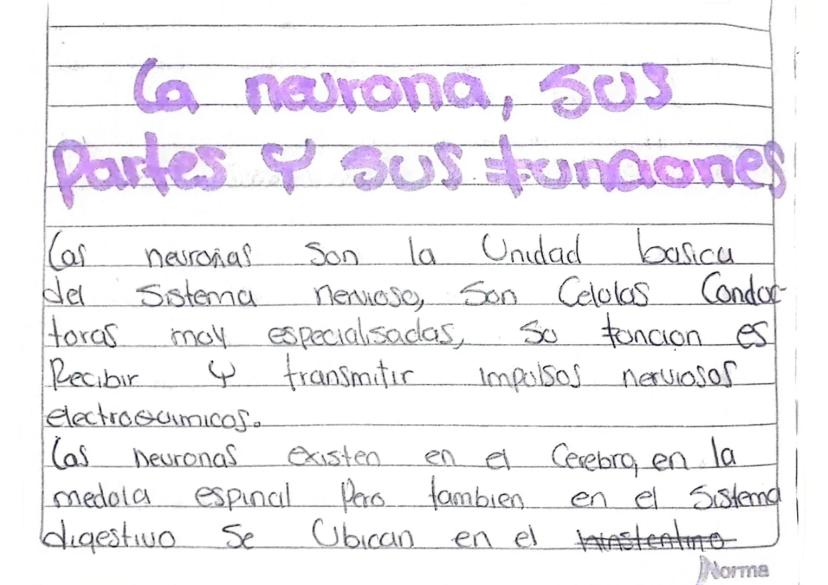 La neurona, sus
Partes Y sus funciones
Las neuronas son la Unidad basica
del Sistema nervioso, Son Celulas Conduc-
toras muy especialisadas, Su funcion es
Recibir Y transmitir impulsos nerviosos
electroquimicos.
Las neuronas existen en el Cerebro, en la
medula espinal Pero tambien en el Sistema
digestivo Se Ubican en el
Norma